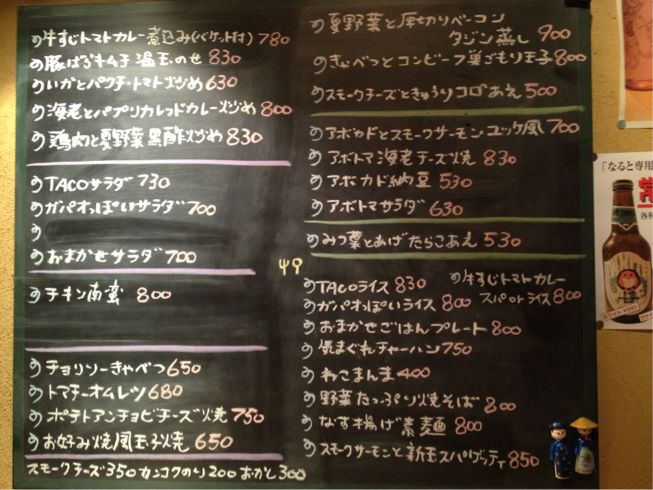 牛すじトマトカレー煮込み(バケット付) 780
豚ばらキムチ 温玉のせ 830
いかとパクチ・トマト炒め 630
海老とパプリカレッドカレー炒め 800
鶏肉と夏野菜黒酢炒め 830
TACOサラダ 730
ガパオっぽいサラダ 700
おまかせサラダ 700
チキン南蛮 800
チョリソーきゃべつ 650
トマチーオムレツ 680
ポテトアンチョビチーズ焼 750
お好み焼風玉子焼 650
スモークチーズ350 カンコクのり200 おかし300
夏野菜と厚切りベーコン
タジン蒸し 900
きゃべつとコンビーフ巣ごもり玉子 800
スモークチーズときゅうりコロあえ 500
アボカドとスモークサーモンユッケ風 700
アボトマ海老チーズ焼 830
アボカド納豆 530
アボトマサラダ 630
みつ葉とあげたらこあえ 530
TACOライス 830
牛すじトマトカレー
スパ or ライス 800
ガパオっぽいライス 800
おまかせごはんプレート 800
気まぐれチャーハン 750
ねこまんま 400
野菜たっぷり焼そば 800
なす揚げ素麺 800
スモークサーモンと新玉スパゲッティ 850
「なると専用
常